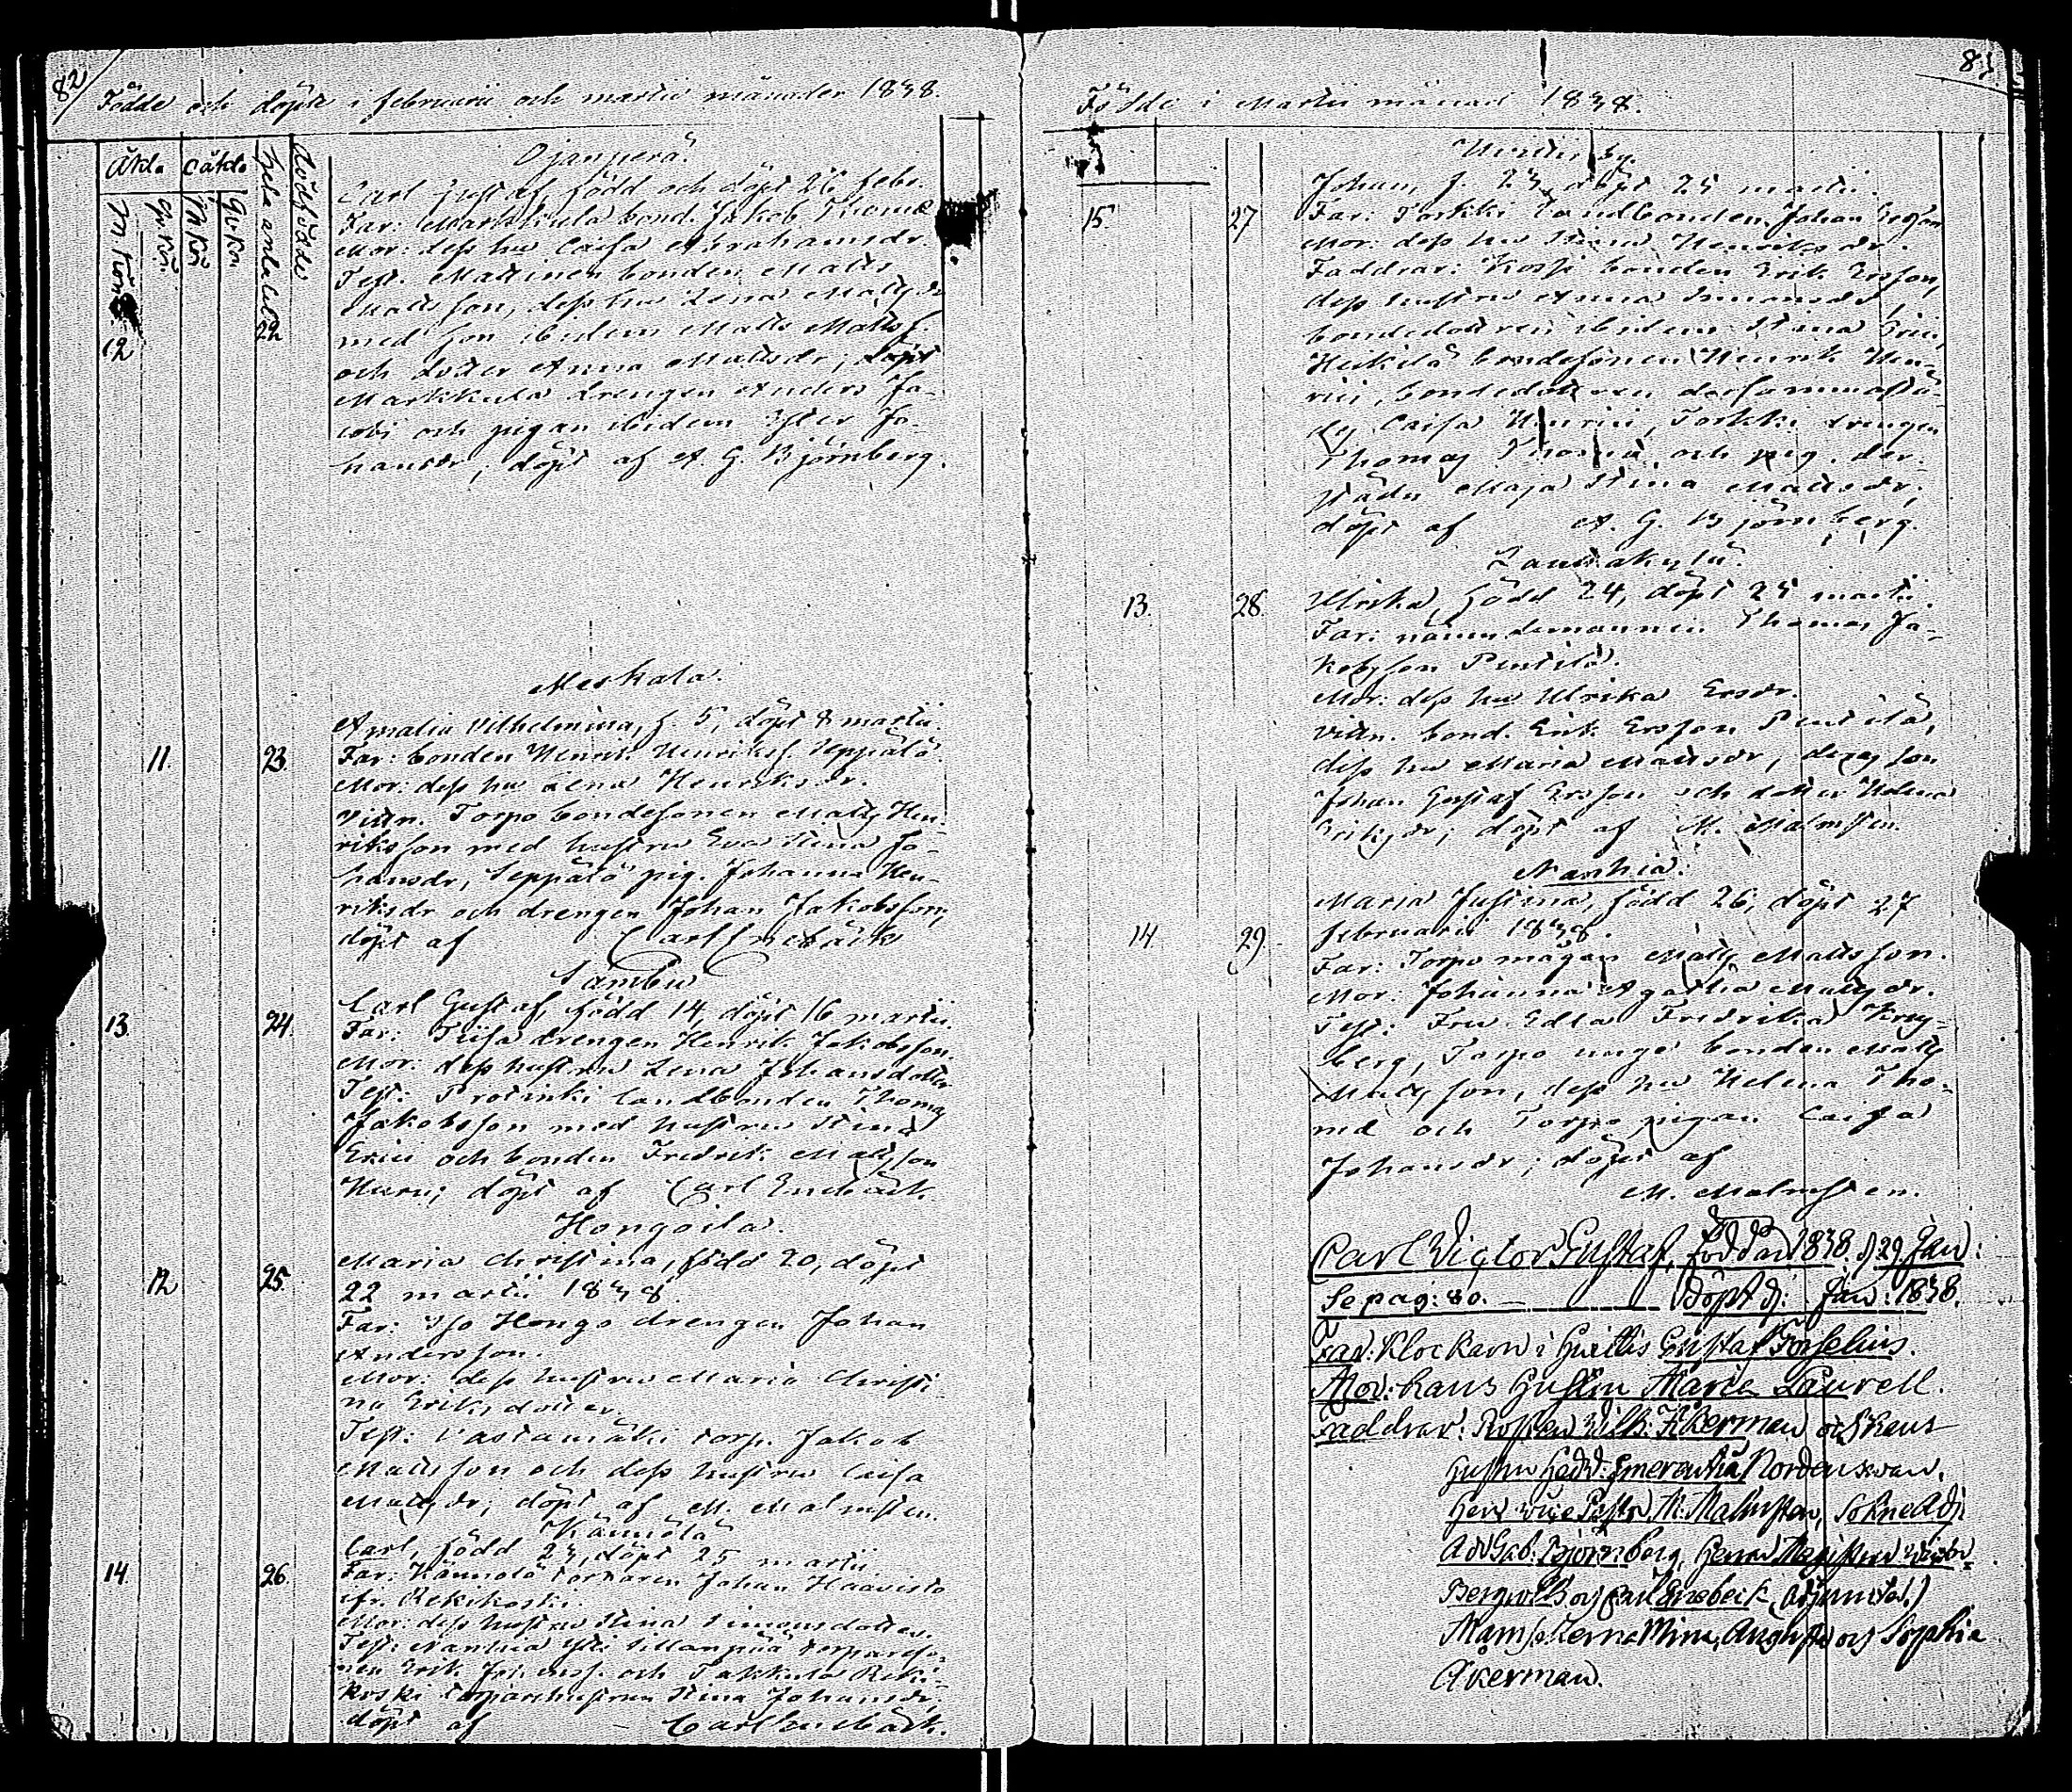 82
Födde och döpte i februarii och martii månader 1838.
Äkta
oäkta
hela antalet
dödfödde
M. kön
qv. kö.
M kön
Qv. kön
Ojanperä.
12
22
Carl Gustaf, född och döpt 26 febr.
Far: Markkula bond. Jakob Thomæ
Mor: dess hu Caisa Abrahamsdr.
Test. Mattinen bonden Matts
Mattsson, dess hu Lena Mattsdr
med son ibidem Matts Mattss.
och dotter Anna Mattsdr; döpt
Markkula drengen Anders Ja-
cobi och pigan ibidem Ester Jo-
hansdr; döpt af A. G. Björnberg.
Meskala.
Amalia Vilhelmina, f. 5, döpt 8 martii.
11.
23.
Far: bonden Henrik Henrikss. Seppälä.
Mor: dess hu Lena Henriksdr.
Vittn. Torpo bondesonen Matts Hen-
riksson med hustru Eva Stina Jo-
hansdr, Seppälä pig. Johanna Hen-
riksdr och drengen Johan Jakobsson;
döpt af Carl Enebäck
Sambu
Carl Gustaf, född 14, döpt 16 martii.
13.
24.
Far: Tiisa drengen Henrik Jakobsson.
Mor: dess hustru Lena Johansdotter
Test: Protinki landbonden Thomas
Jakobsson med hustru Stina
Erici och bonden Fredrik Mattsson
Huru; döpt af Carl Enebäck.
Hongoila.
Maria Christina, född 20, döpt
12
25.
22 martii 1838.
Far: Iso Hongo drengen Johan
Andersson.
Mor: dess hustru Maria Christi-
na Eriksdotter.
Test: Vastamäki torp. Jakob
Mattsson och dess hustru Caisa
Mattsdr; döpt af M. Malmsten.
Kännölä
Carl, född 23, döpt 25 martii.
14.
26.
Far: Kännölä torparen Johan Haavisto
ifr. Rekikoski.
Mor: dess hustru Stina Simonsdotter.
Test: Nanhia Yli Sillanpää torpareso-
nen Erik Johanss. och Takkula Reki-
koski torparehustrun Stina Johansdr;
döpt af Carl Enebäck.
83
Födde i Martii månad 1838.
by.
Johan, f. 23, döpt 25 martii.
15.
27
Far: Torkki landbonden Johan Ersson
Mor: dess hu Stina Henriksdr.
Faddrar: Kossi bonden Erik Ersson,
dess hustru Anna Simonsdr,
bondedottren ibidem Stina Erici,
Heikilä bondesonen Henrik Hen-
rici, bondedottren dersammastä-
des Caisa Henrici, Torkki drengen
Thomas Thomæ och pig. der-
städes Maja Stina Mattsdr;
döpt af A. G. Björnberg.
Lauttakylä.
13.
28.
Ulrika, född 24, döpt 25 martii.
Far: nämndemannen Thomas Ja-
kobsson Penttilä.
Mor: dess hu Ulrika Ersdr.
Vittn. bond. Erik Ersson Penttilä,
dess hu Maria Mattsdr, deras son
Johan Gustaf Ersson och dotter Helena
Eriksdr; döpt af M. Malmsten.
Nanhia.
Maria Justina, född 26, döpt 27
14
29.
februarii 1838.
Far: Torpo mågen Matts Mattsson.
Mor: Johanna Agatha Mattsdr.
Test: Fru Edla Fredrika Krog-
berg, Torpo unge bonden Matts
Mattsson, dess hu Helena Tho-
mæ och Torpo pigan Caisa
Johansdr; döpt af
M. Malmsten.
Carl Victor Gustaf, född år 1838. d. 29 Jan:
Se pag: 80. — Döpt d: Jan: 1838.
Far: Klockarn i Huittis Gustaf Forselius.
Mor: hans Hustru Maria Laurell.
Faddrar: Prosten Wilh. Åkerman och hans
Hustru Hedv: Emerentia Nordenswan,
Herr Vice Past. M. Malmsten, Sokne Adj:
Ad Gab. Björnberg, Herr Magistern
Bergwall och Carl Enebeck, Adjuncter.)
Mamsellerna Mina, Augusta och Sophia
Åkerman.